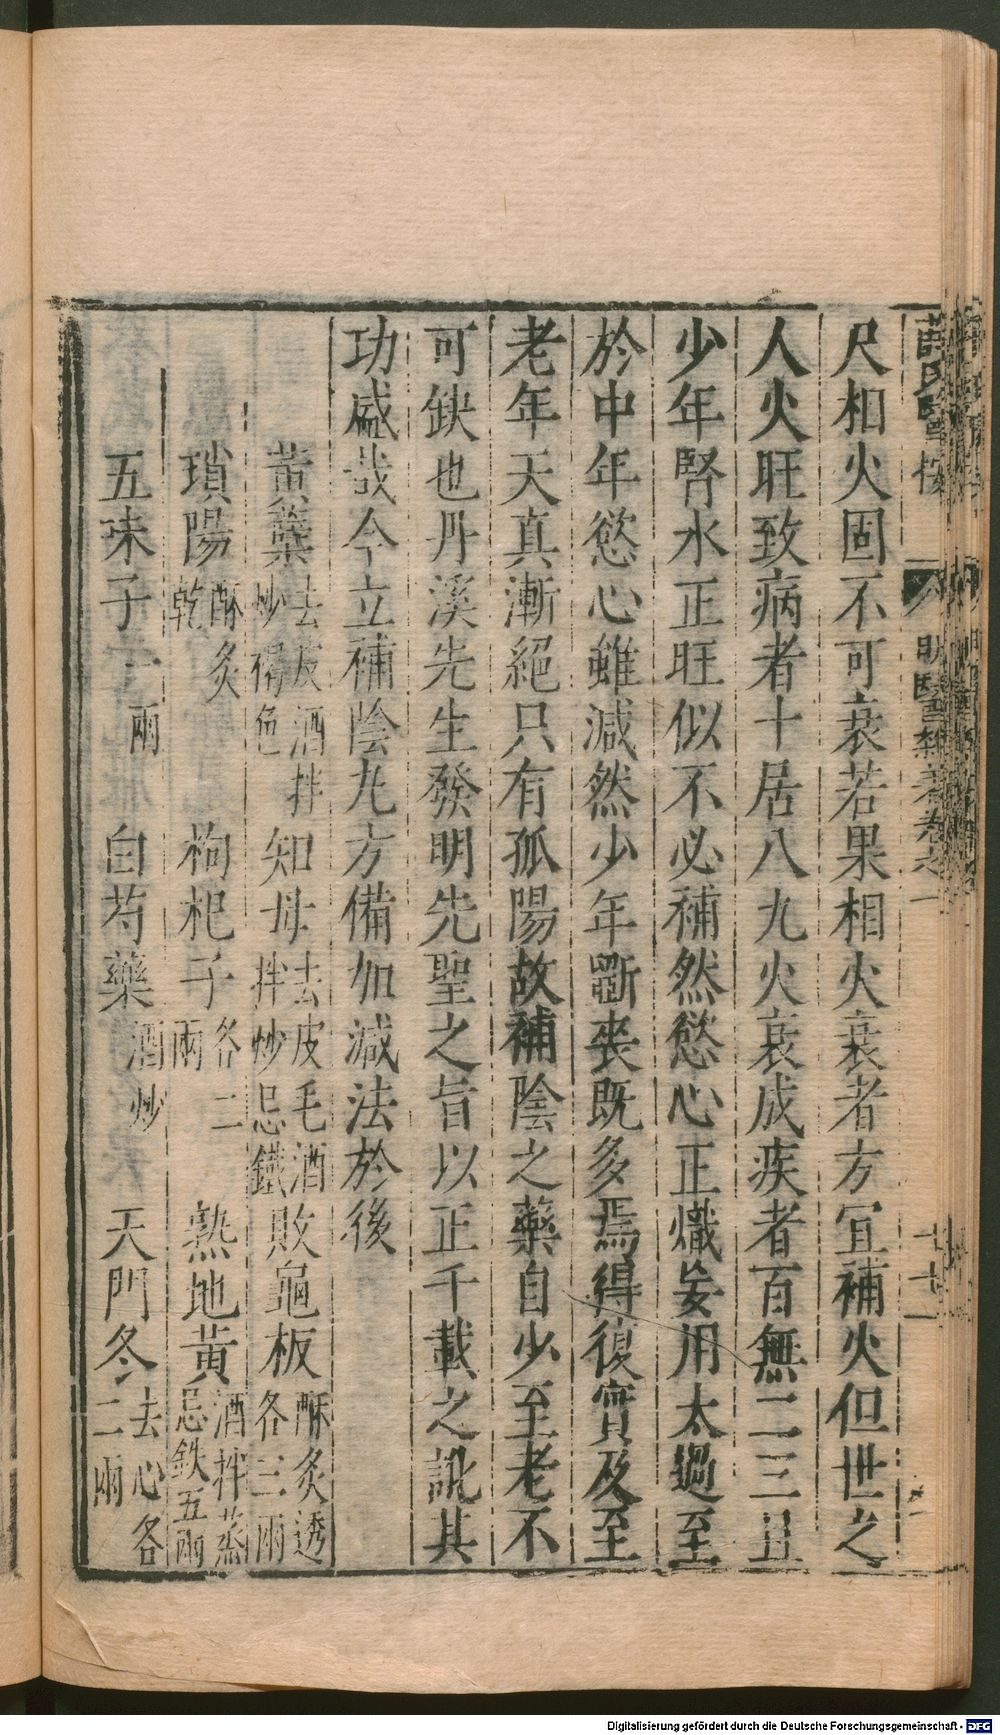 薛氏醫按 明醫雜著卷之一 十七
尺相火固不可衰若果相火衰者方宜補火但世之
人火旺致病者十居八九火衰成疾者百無二三且
少年腎水正旺似不必補然慾心正熾妄用太過至
於中年慾心雖減然少年斵喪既多焉得復實及至
老年天真漸絕只有孤陽故補陰之藥自少至老不
可缺也丹溪先生發明先聖之旨以正千載之訛其
功盛哉今立補陰丸方備加減法於後
黃蘗去皮酒拌炒褐色 知母去皮毛酒拌炒忌鐵 敗龜板酥炙透各三兩
瑣陽酥炙乾 枸杞子各二兩 熟地黃酒拌蒸忌鉄五兩
五味子一兩 白芍藥酒炒 天門冬去心各二兩
Digitalisierung gefördert durch die Deutsche Forschungsgemeinschaft - DFG